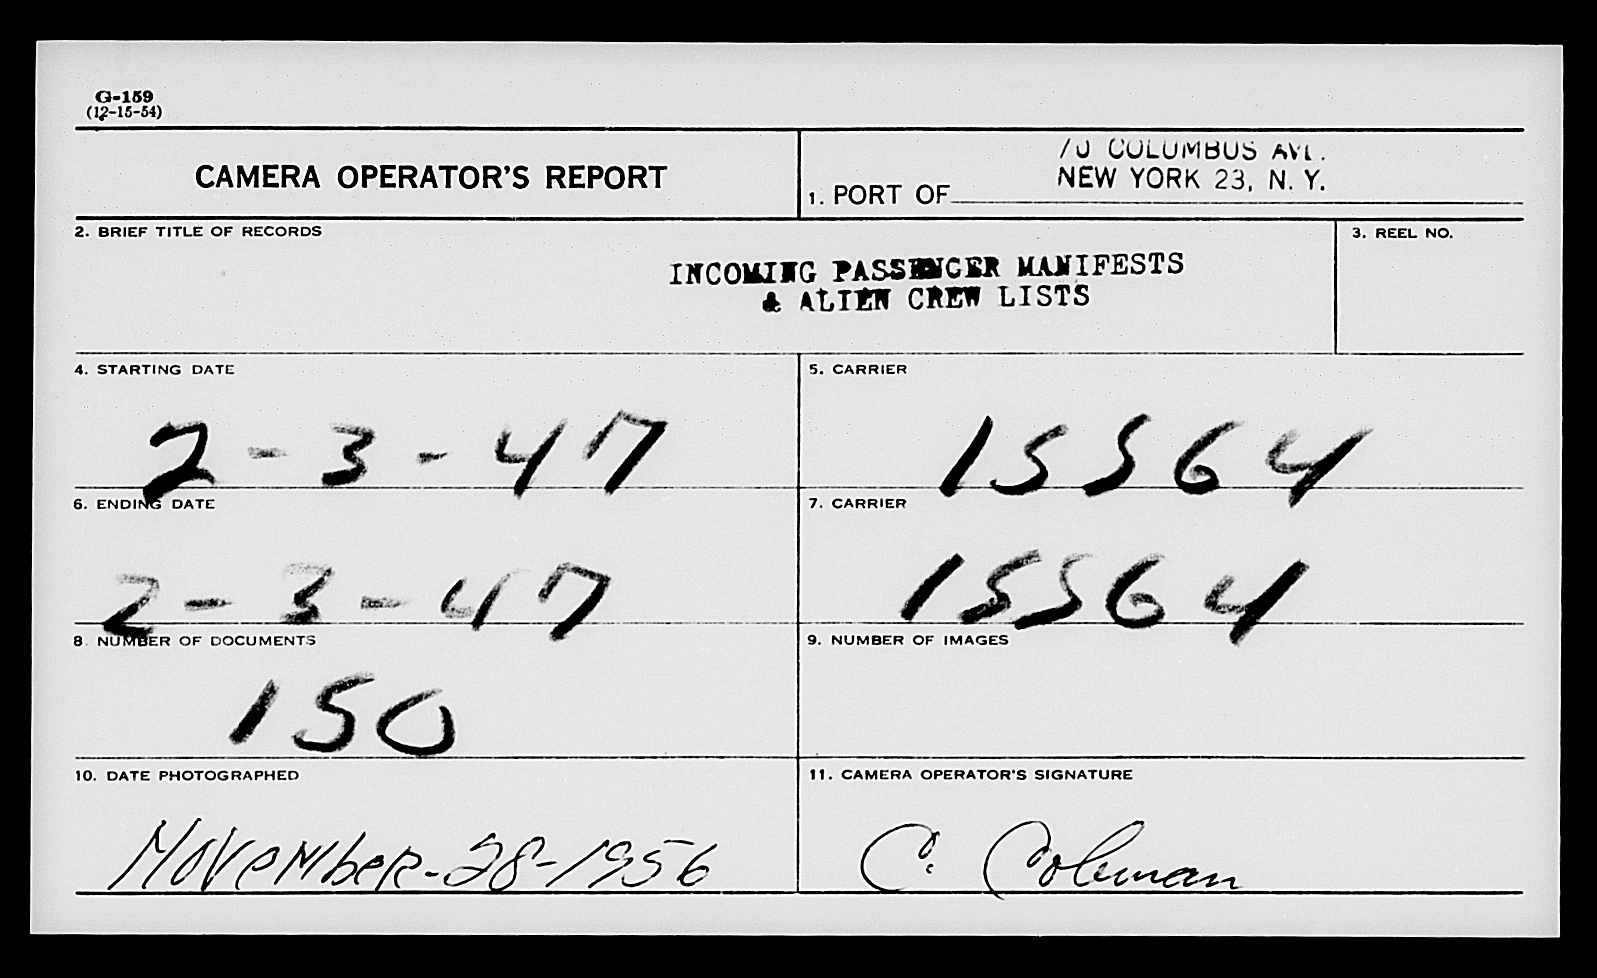 G-159
(12-15-54)
CAMERA OPERATOR'S REPORT
70 COLUMBUS AVE.
NEW YORK 23, N. Y.
1. PORT OF
2. BRIEF TITLE OF RECORDS
3. REEL NO.
INCOMING PASSENGER MANIFESTS
& ALIEN CREW LISTS
4. STARTING DATE
5. CARRIER
2-3-47
15564
6. ENDING DATE
7. CARRIER
2-3-47
15564
8. NUMBER OF DOCUMENTS
9. NUMBER OF IMAGES
150
10. DATE PHOTOGRAPHED
11. CAMERA OPERATOR'S SIGNATURE
November-28-1956
C. Coleman